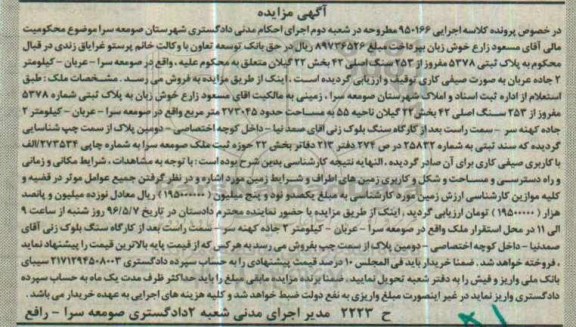 آگهی مزایده
در خصوص پرونده کلاسه اجرایی ۹۵۰۱۶۶ مطروحه در شعبه دوم اجرای احکام مدنی دادگستری شهرستان صومعه سرا موضوع محکومیت
مالی آقای مسعود زارع خوش زبان بپرداخت مبلغ ۸۹۷۳۶۵۲۶ ریال در حق بانک توسعه تعاون با وکالت خانم پرستو غرایاق زندی در قبال
محکوم به پلاک ثبتی ۵۳۷۸ مفروز از ۲۵۳ سنگ اصلی ۴۲ بخش ۲۲ گیلان متعلق به محکوم علیه، واقع در صومعه سرا – عربان – کیلومتر
۲ جاده عربان به صورت صیفی کاری توقیف و ارزیابی گردیده است . اینک از طریق مزایده به فروش می رسد . مشخصات ملک : طبق
استعلام از اداره ثبت اسناد و املاک شهرستان صومعه سرا ، زمینی به مالکیت اقای مسعود زارع خوش زبان به پلاک ثبتی شماره ۵۳۷۸
مفروز از ۲۵۳ سنگ اصلی ۴۲ بخش ۲۲ گیلان ناحیه ۵۵ به مساحت حدود ۲۷۳۰۴۵ متر مربع واقع در صومعه سرا – عربان – کیلومتر ۲
جاده کهنه سر – سمت راست بعد از کارگاه سنگ بلوک زنی آقای صمد نیا – داخل کوچه اختصاصی – دومین پلاک از سمت چپ شناسایی
گردیده که سند ثبتی به شماره ۲۵۸۳۲ در ص ۲۷۴ دفتر ۲۱۳ دفاتر بخش ۲۲ حوزه ثبت ملک صومعه سرا به شماره چاپی ۲۷۳۵۳۴/الف
با کاربری صیفی کاری برای آن صادر گردیده . النهایه نتیجه کارشناسی بدین شرح بوده است : با توجه به مشاهدات ، شرایط مکانی و زمانی
و راه دسترسی و مساحت و شکل و کاربری زمین های اطراف و شرایط زمین مورد اشاره و در نظر گرفتن جمیع عوامل موثر در قضیه و
کلیه موازین کارشناسی ارزش زمین مورد کارشناسی به مبلغ یکصد و نود و پنج میلیون (۱۹۵۰۰۰۰۰۰) ریال معادل نوزده میلیون و پانصد
هزار (۱۹۵۰۰۰۰۰) تومان ارزیابی گردید . اینک از طریق مزایده با حضور نماینده محترم دادستان در تاریخ ۹۶/۵/۷ روز شنبه از ساعت ۹
الی ۱۱ در محل استقرار ملک واقع در صومعه سرا – عربان – کیلومتر ۲ جاده کهنه سر – سمت راست بعد از کارگاه سنگ بلوک زنی آقای
صمدنیا – داخل کوچه اختصاصی – دومین پلاک از سمت چپ بفروش می رسد به هرکس که از قیمت پایه بالاترین قیمت را پیشنهاد نماید
، فروخته خواهد شد . ضمنا خریدار باید فی المجلس ۱۰ درصد قیمت پیشنهادی را به حساب سپرده دادگستری ۲۱۷۱۲۹۴۵۰۸۰۰۳
بانک ملی واریز و فیش را به دفتر شعبه تحویل نمایید . ضمنا برنده مزایده مابقی مبلغ را باید حداکثر ظرف مدت یک ماه به حساب سپرده
دادگستری واریز نماید در غیر اینصورت مبلغ واریزی به نفع دولت ضبط خواهد شد و کلیه هزینه های اجرایی به عهده خریدار می باشد .
ح ۲۲۲۳ مدیر اجرای مدنی شعبه ۲ دادگستری صومعه سرا – رافع